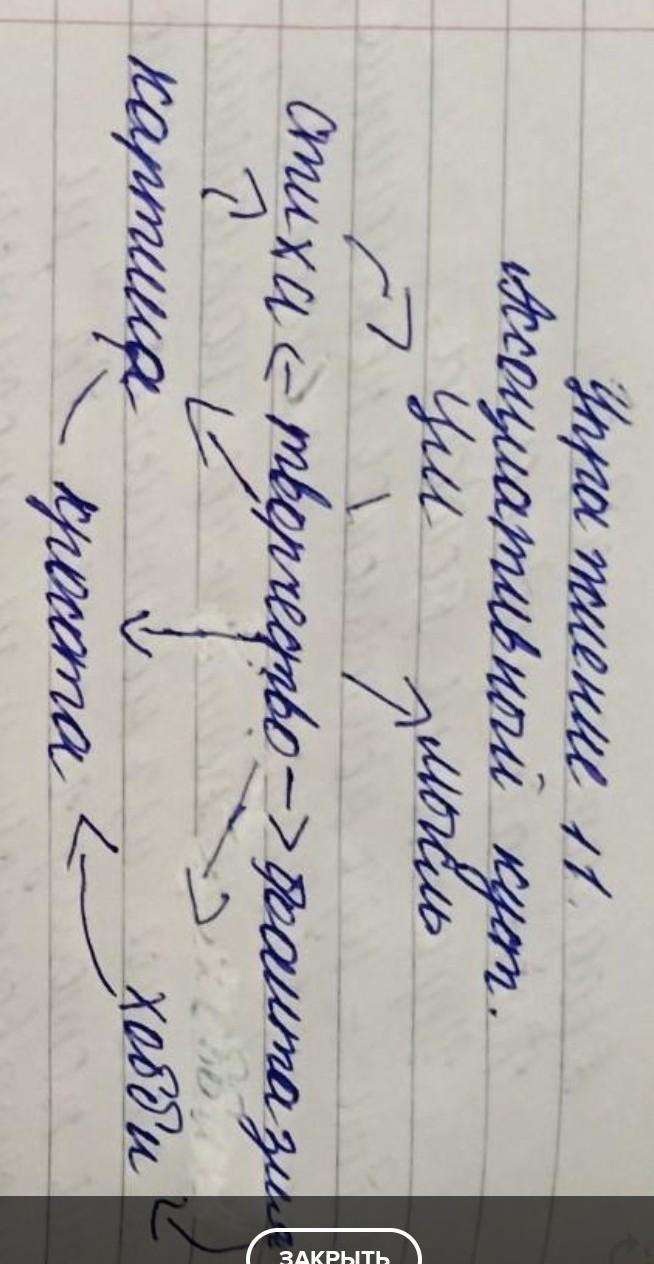 Упражнение 11.
Ассоциативный куст.
Ум мысль
стихи ← творчество → фантазия
картина хобби
красота
ЗАКРЫТЬ